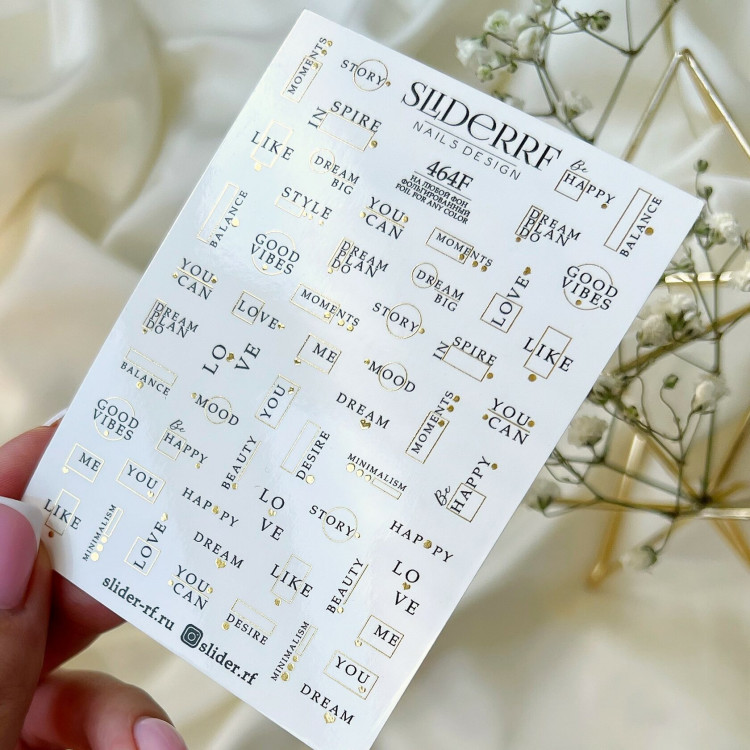 MOMENTS
STORY
SLIDERRF
NAILS DESIGN
464F
НА ЛЮБОЙ ФОН
ФОЛЬГИРОВАННЫЙ
FOIL FOR ANY COLOR
Be
HAPPY
BALANCE
IN
SPIRE
LIKE
DREAM
BIG
STYLE
YOU
CAN
MOMENTS
DREAM
PLAN
DO
BALANCE
GOOD
VIBES
DREAM
PLAN
DO
DREAM
BIG
LOVE
GOOD
VIBES
YOU
CAN
LOVE
MOMENTS
STORY
IN
SPIRE
LIKE
DREAM
PLAN
DO
LO
VE
ME
MOOD
MOMENTS
YOU
CAN
BALANCE
MOOD
YOU
DREAM
GOOD
VIBES
Be
HAPPY
BEAUTY
DESIRE
MINIMALISM
Be
HAPPY
ME
YOU
HAPPY
LO
VE
STORY
HAPPY
LIKE
MINIMALISM
LOVE
DREAM
LIKE
BEAUTY
LO
VE
YOU
CAN
DESIRE
MINIMALISM
ME
YOU
DREAM
slider-rf.ru
slider.rf